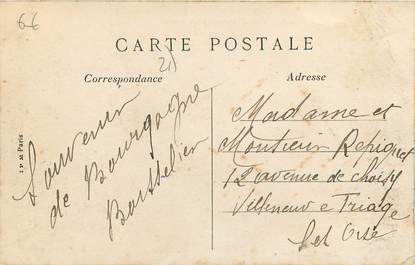 6€
CARTE POSTALE
21
Correspondance
Adresse
I P M Paris
Souvenir
de Bourgogne
Madame et
Montieur Repiquet
12 avenue de Choisy
Villeneuve Triage
Set Oise